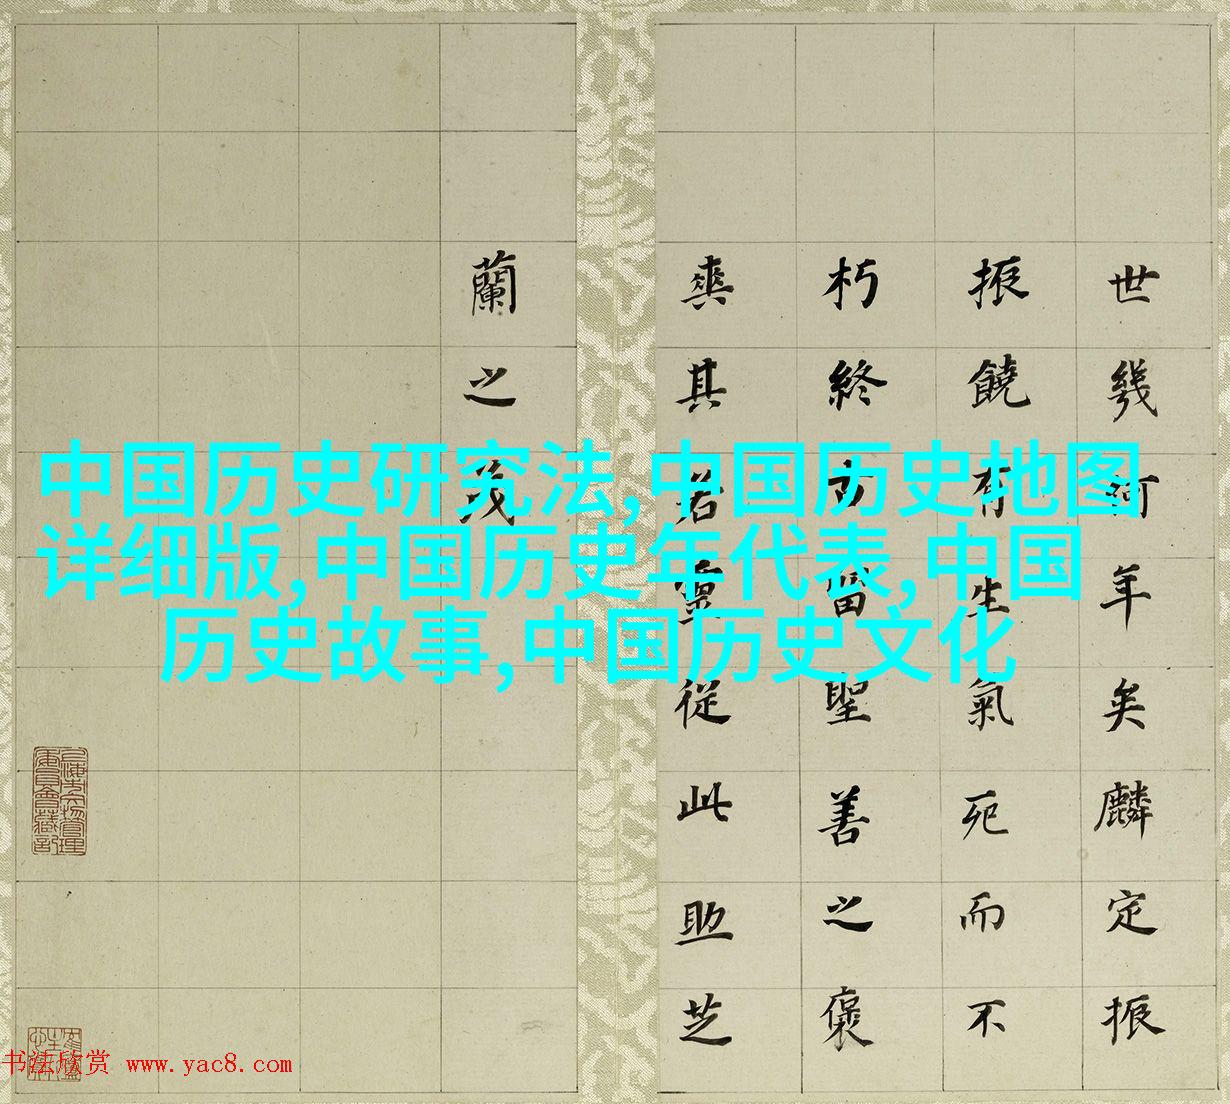 世幾何年矣麟定振
振饒有生氣死而不
朽終文留聖善之褒
爽其若靈從此助芝
蘭之茂
中国历史研究法,中国历史地图
详细版,中国历史年代表,中国
历史故事,中国历史文化
书法欣赏 www.yac8.com